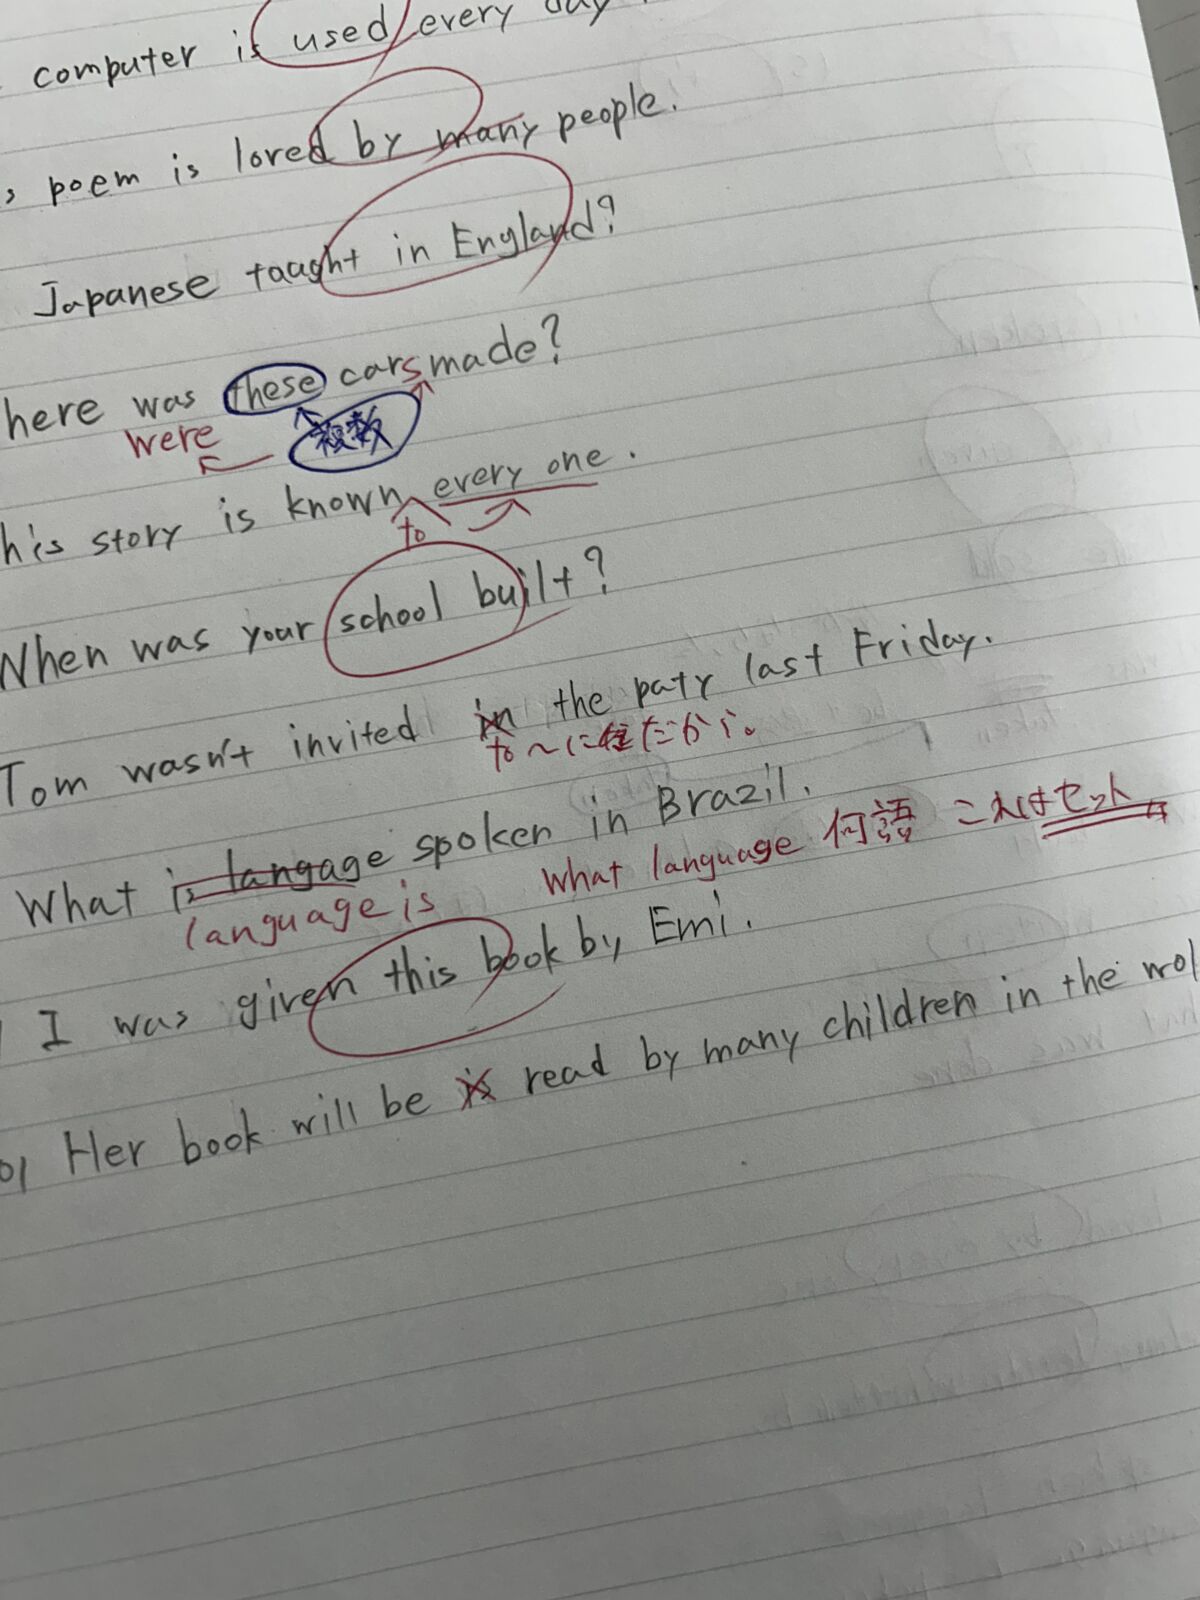 computer is used every day
s poem is loved by many people.
Japanese taught in England?
here was these cars made?
were 複数
his story is known every one.
to
When was your school built?
Tom wasn't invited in the paty last Friday.
to ~に だから。
What is langage spoken in Brazil.
language is What language 何語 これはセット
I was given this book by Emi.
Her book will be is read by many children in the wol